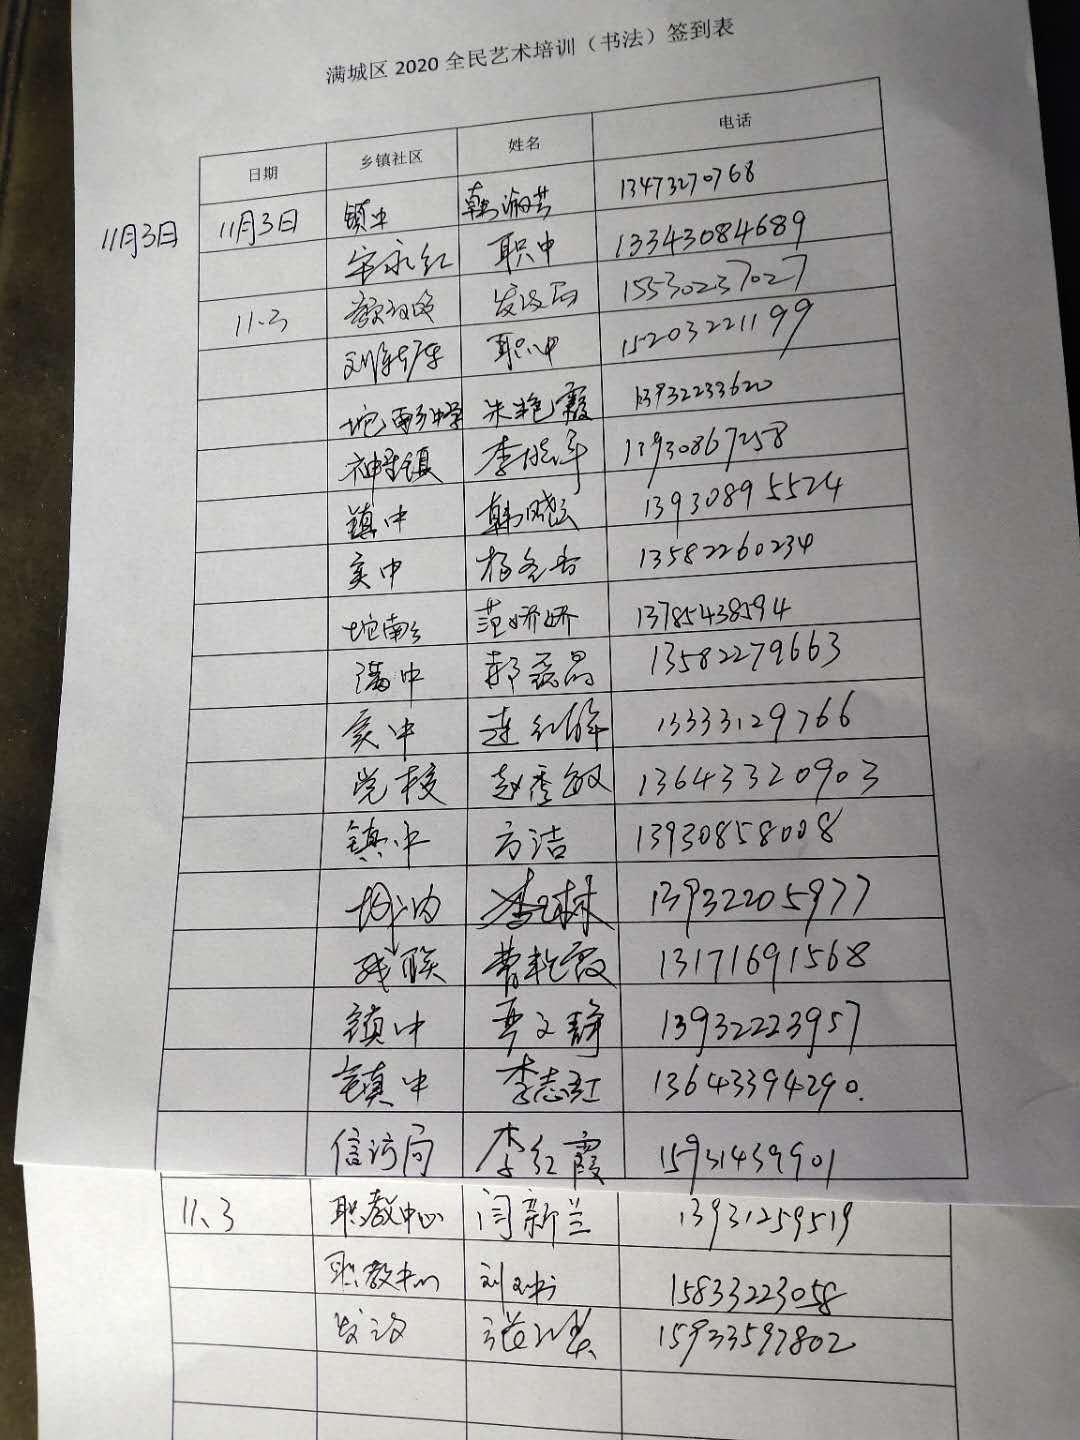 满城区2020全民艺术培训（书法）签到表
日期 乡镇社区 姓名 电话
11月3日 11月3日 镇中 韩淑芸 13473270768
宋永红 职中 13343084689
11.3 15530237027
职中 15203221199
坨南乡中学 朱艳霞 13932233620
神星镇 李 13930867258
镇中 韩晓云 13930895524
实中 杨冬香 13582260234
坨南乡 范娇娇 13785438594
满中 郝磊晶 13582279663
实中 连红 13333129766
党校 赵秀敏 13643320903
镇中 方洁 13930858008
13932205977
残联 曹艳霞 13171691568
镇中 贾文静 13932223957
镇中 李志红 13643394290.
信访局 李红霞 15931439901
11、3 职教中心 闫新兰 13931259519
职教中心 刘 15833223058
发改 张 15933597802